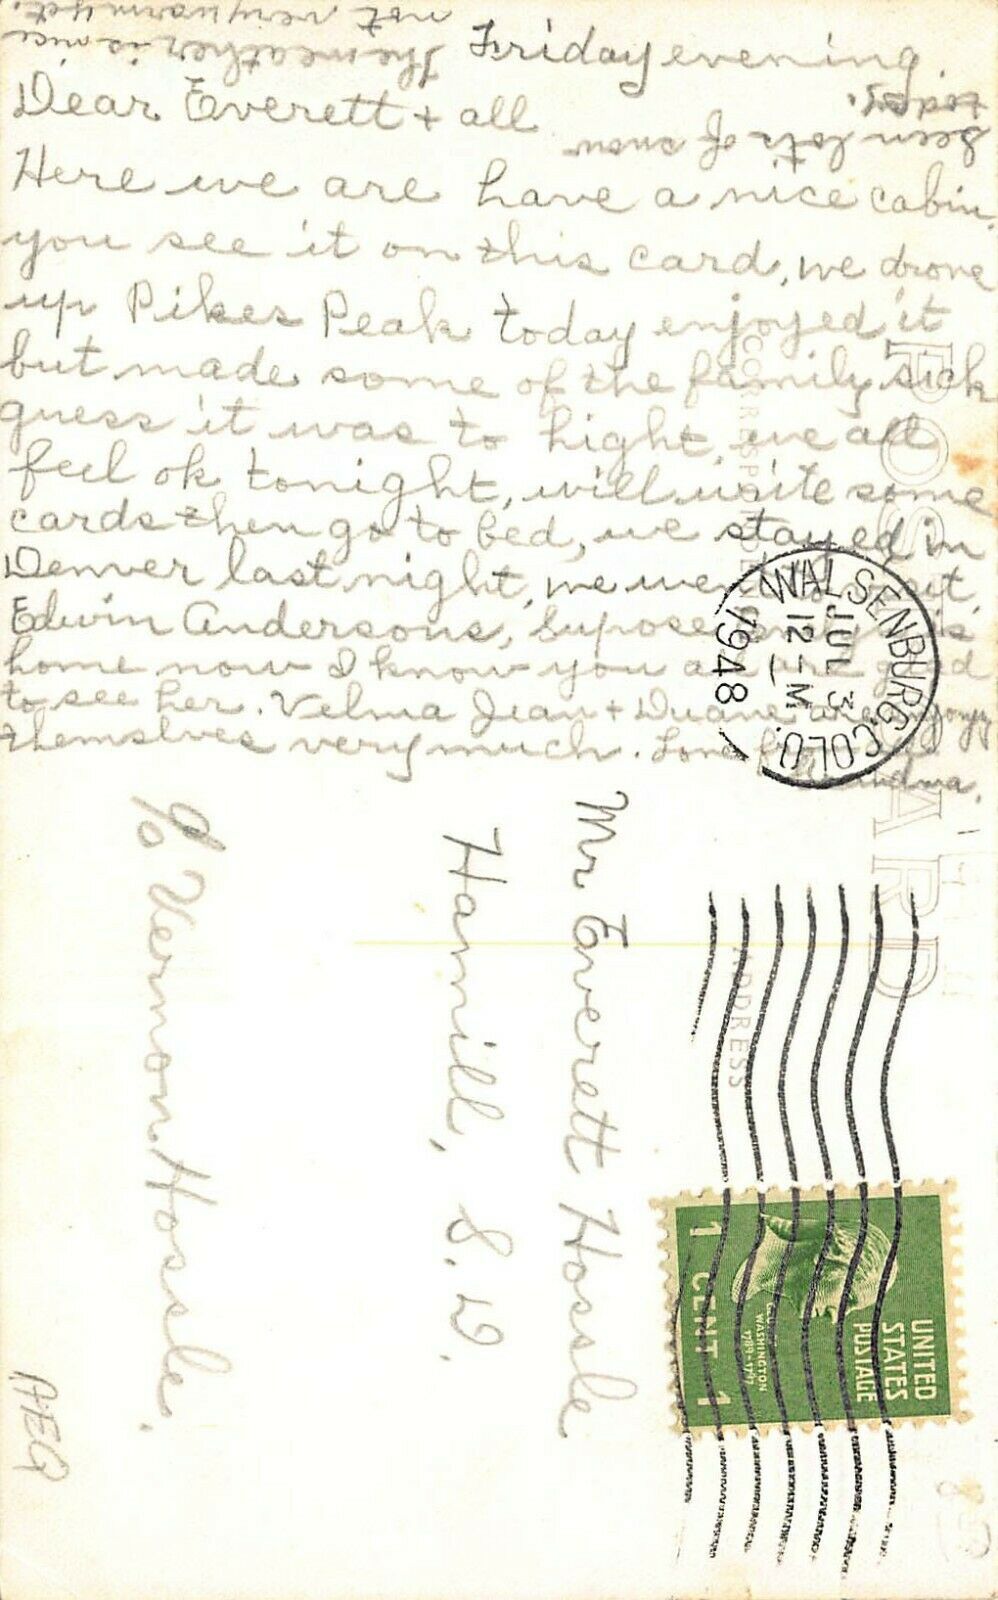 Friday evening.
Dear Everett + all
Here we are have a nice cabin,
you see it on this card, we drove
up Pikes Peak today enjoyed it
but made some of the family sick
guess it was to hight, we all
feel ok tonight, will write some
cards then go to bed, we stayed in
Denver last night, we went to visit
Edwin Andersons, Supose is
home now I know you are glad
to see her. Velma Jean + Duane are enjoying
themslves very much. Love Grandma.
The weather is nice
not very warm yet.
Seen lots of snow
today.
POST CARD
CORRESPONDENCE
ADDRESS
WALSENBURG, COLO.
JUL 3
12-M
1948
Mr Everett Hossle
Hamill, S.D.
c/o Vernon Hossle.
UNITED
STATES
POSTAGE
WASHINGTON
1789-1797
1 CENT 1
AEG